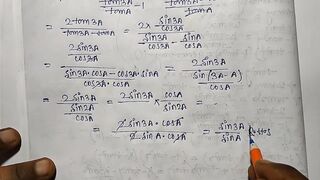 tan3A / tanA - 1 tanA
= 2tan3A / tan3A - tanA = 2 × sin3A/cos3A / sin3A/cos3A - sinA/cosA
= 2sin3A/cos3A / sin3A·cosA - cos3A·sinA / cos3A·cosA = 2sin3A/cos3A / sin(3A-A)/cos3A·cosA
= 2sin3A/sin2A/cosA = 2sin3A × cosA/sin2A =
= 2sin3A·cosA / 2sinA·cosA = sin3A/sinA